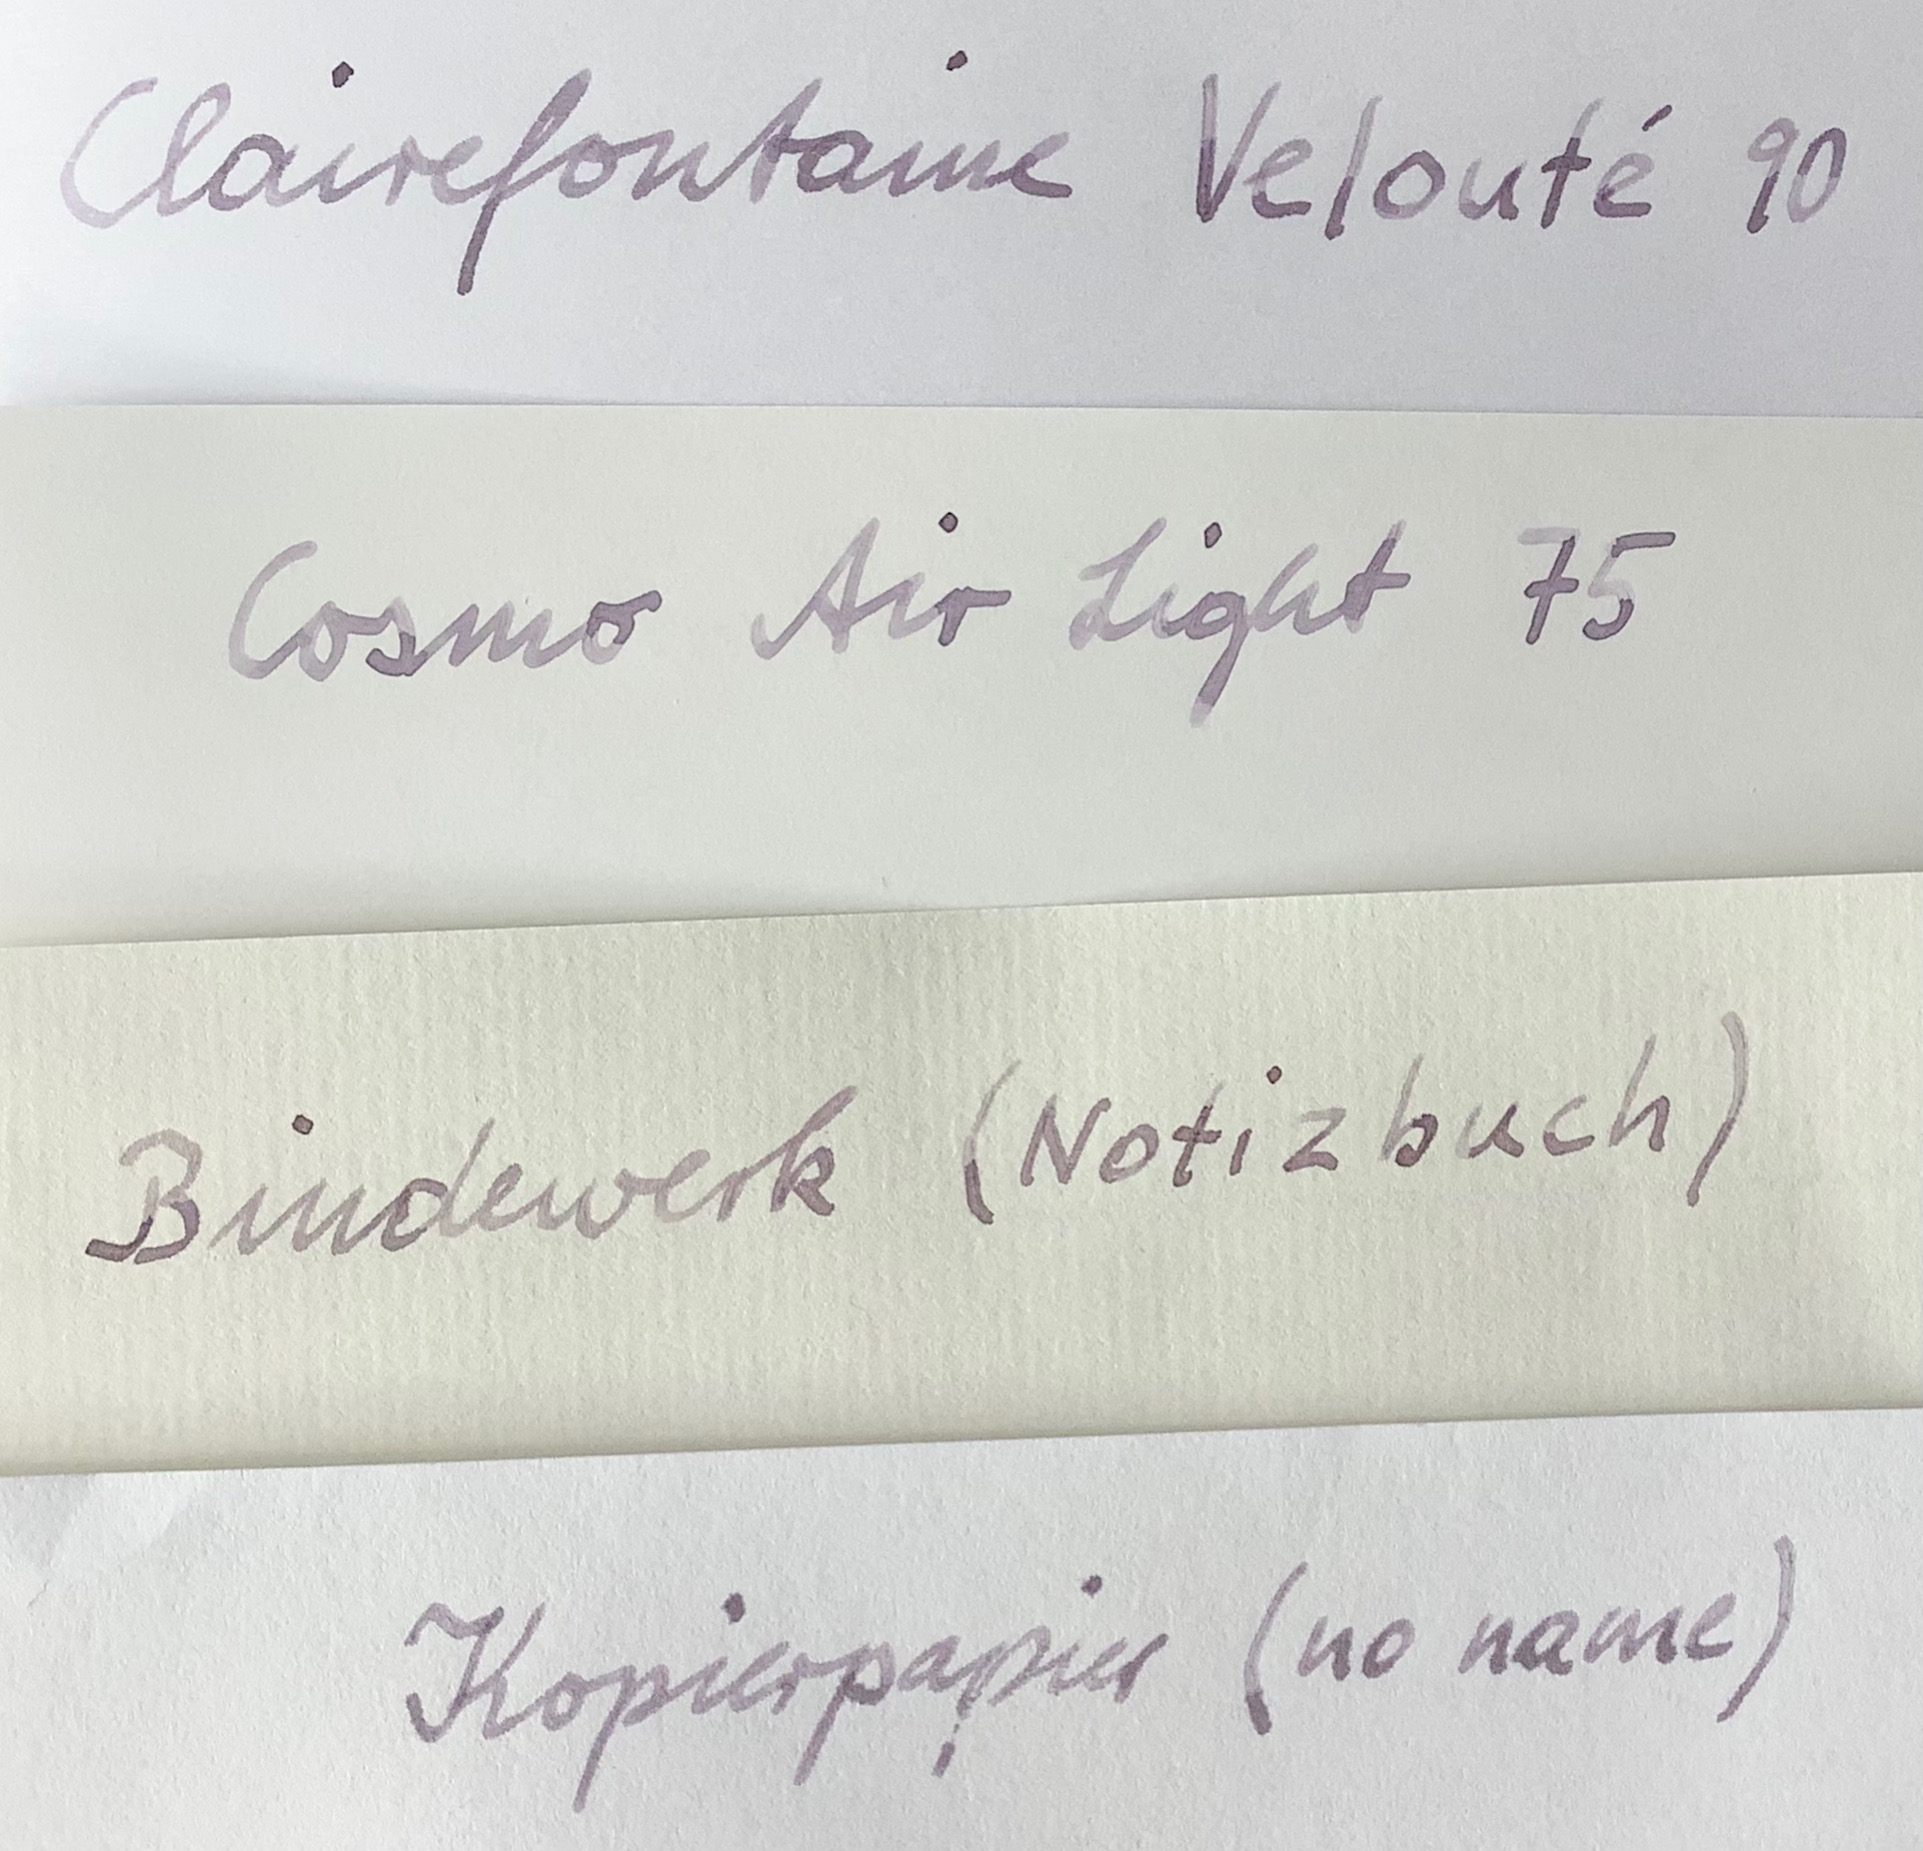 Clairefontaine Velouté 90
Cosmo Air Light 75
Bindewerk (Notizbuch)
Kopierpapier (no name)